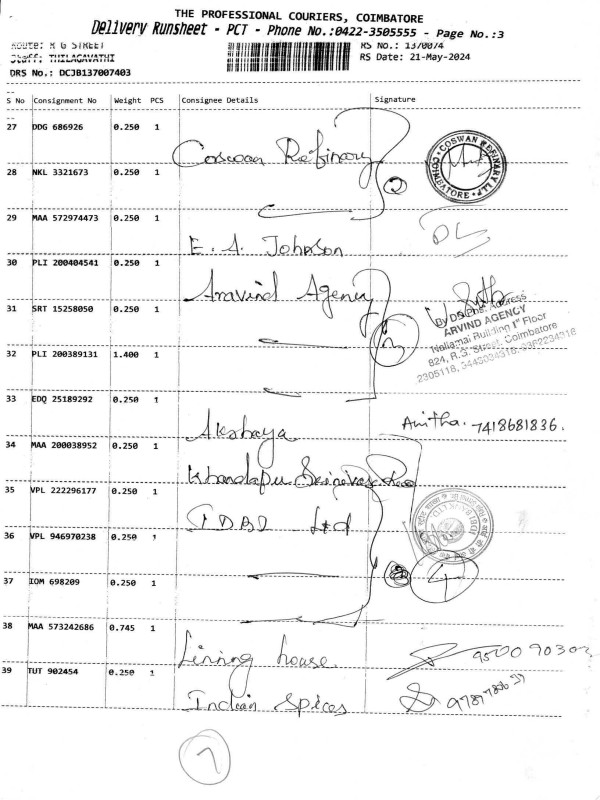 THE PROFESSIONAL COURIERS, COIMBATORE
Delivery Runsheet - PCT - Phone No.:0422-3505555 - Page No.:3
Route: R G STREET
RS No.: 1370074
Staff: THILAGAVATHI
RS Date: 21-May-2024
DRS No.: DCJB137007403
S No Consignment No Weight PCS Consignee Details Signature
27 DDG 686926 0.250 1 Coswan Refinary
COSWAN REFINARY COIMBATORE
28 NKL 3321673 0.250 1
2
29 MAA 572974473 0.250 1 E. A. Johnson
30 PLI 200404541 0.250 1 Aravind Agency
31 SRT 15258050 0.250 1
3
ARVIND AGENCY
824, R.G. Street, Coimbatore
32 PLI 200389131 1.400 1
33 EDQ 25189292 0.250 1 Akshaya Anitha. 7418681836.
34 MAA 200038952 0.250 1
35 VPL 222296177 0.250 1 IDBI Ltd
36 VPL 946970238 0.250 1
4
37 IOM 698209 0.250 1
38 MAA 573242686 0.745 1 Linning house
39 TUT 902454 0.250 1 Indian Spices
7